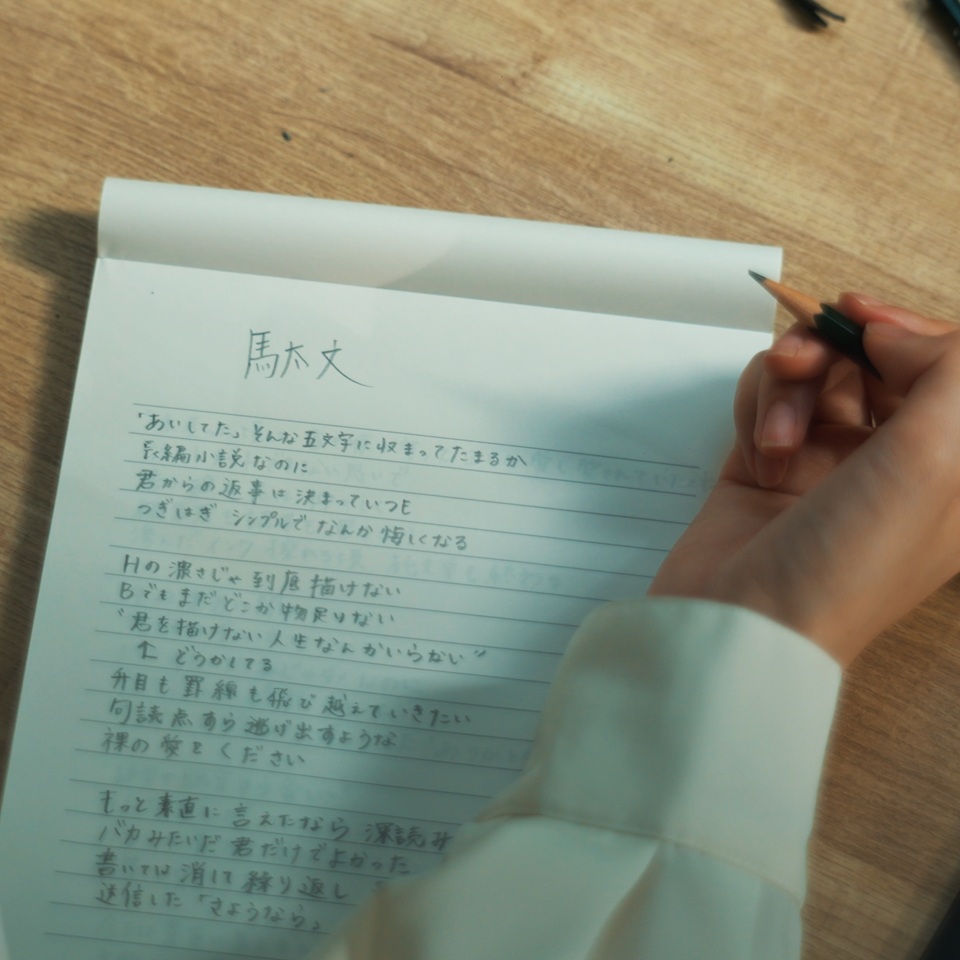 駄文
「あいしてた」そんな五文字に収まってたまるか
長編小説なのに
君からの返事は決まっていつも
つぎはぎ シンプルでなんか悔しくなる
Hの濃さじゃ到底描けない
Bでもまだどこか物足りない
"君を描けない人生なんかいらない"
↑ どうかしてる
升目も罫線も飛び越えていきたい
句読点すら逃げ出すような
裸の愛をください
もっと素直に言えたなら 深読み
バカみたいだ 君だけでよかった
書いては消して繰り返し
送信した「さようなら」